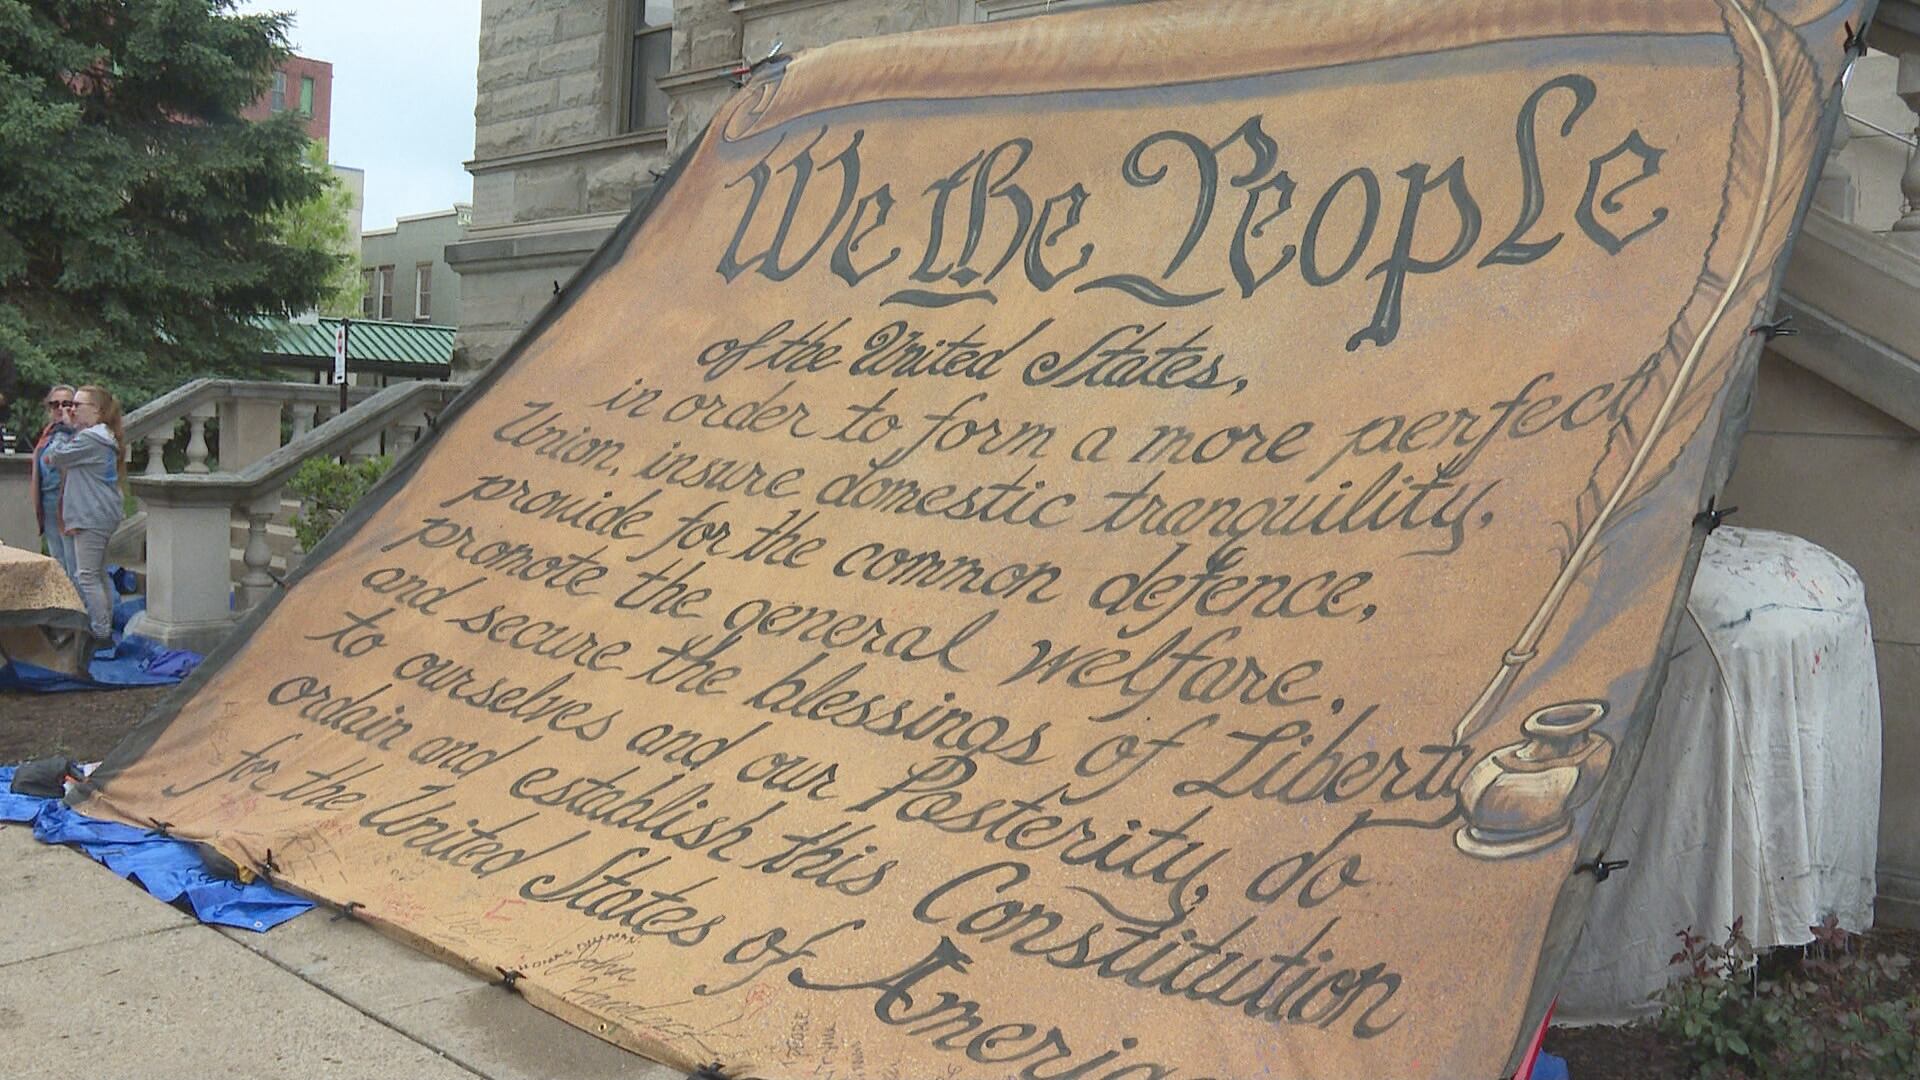 We the People
of the United States,
in order to form a more perfect
Union, insure domestic tranquility,
provide for the common defence,
promote the general welfare,
and secure the blessings of Liberty
to ourselves and our Posterity, do
ordain and establish this Constitution
for the United States of America
THOMAS
John